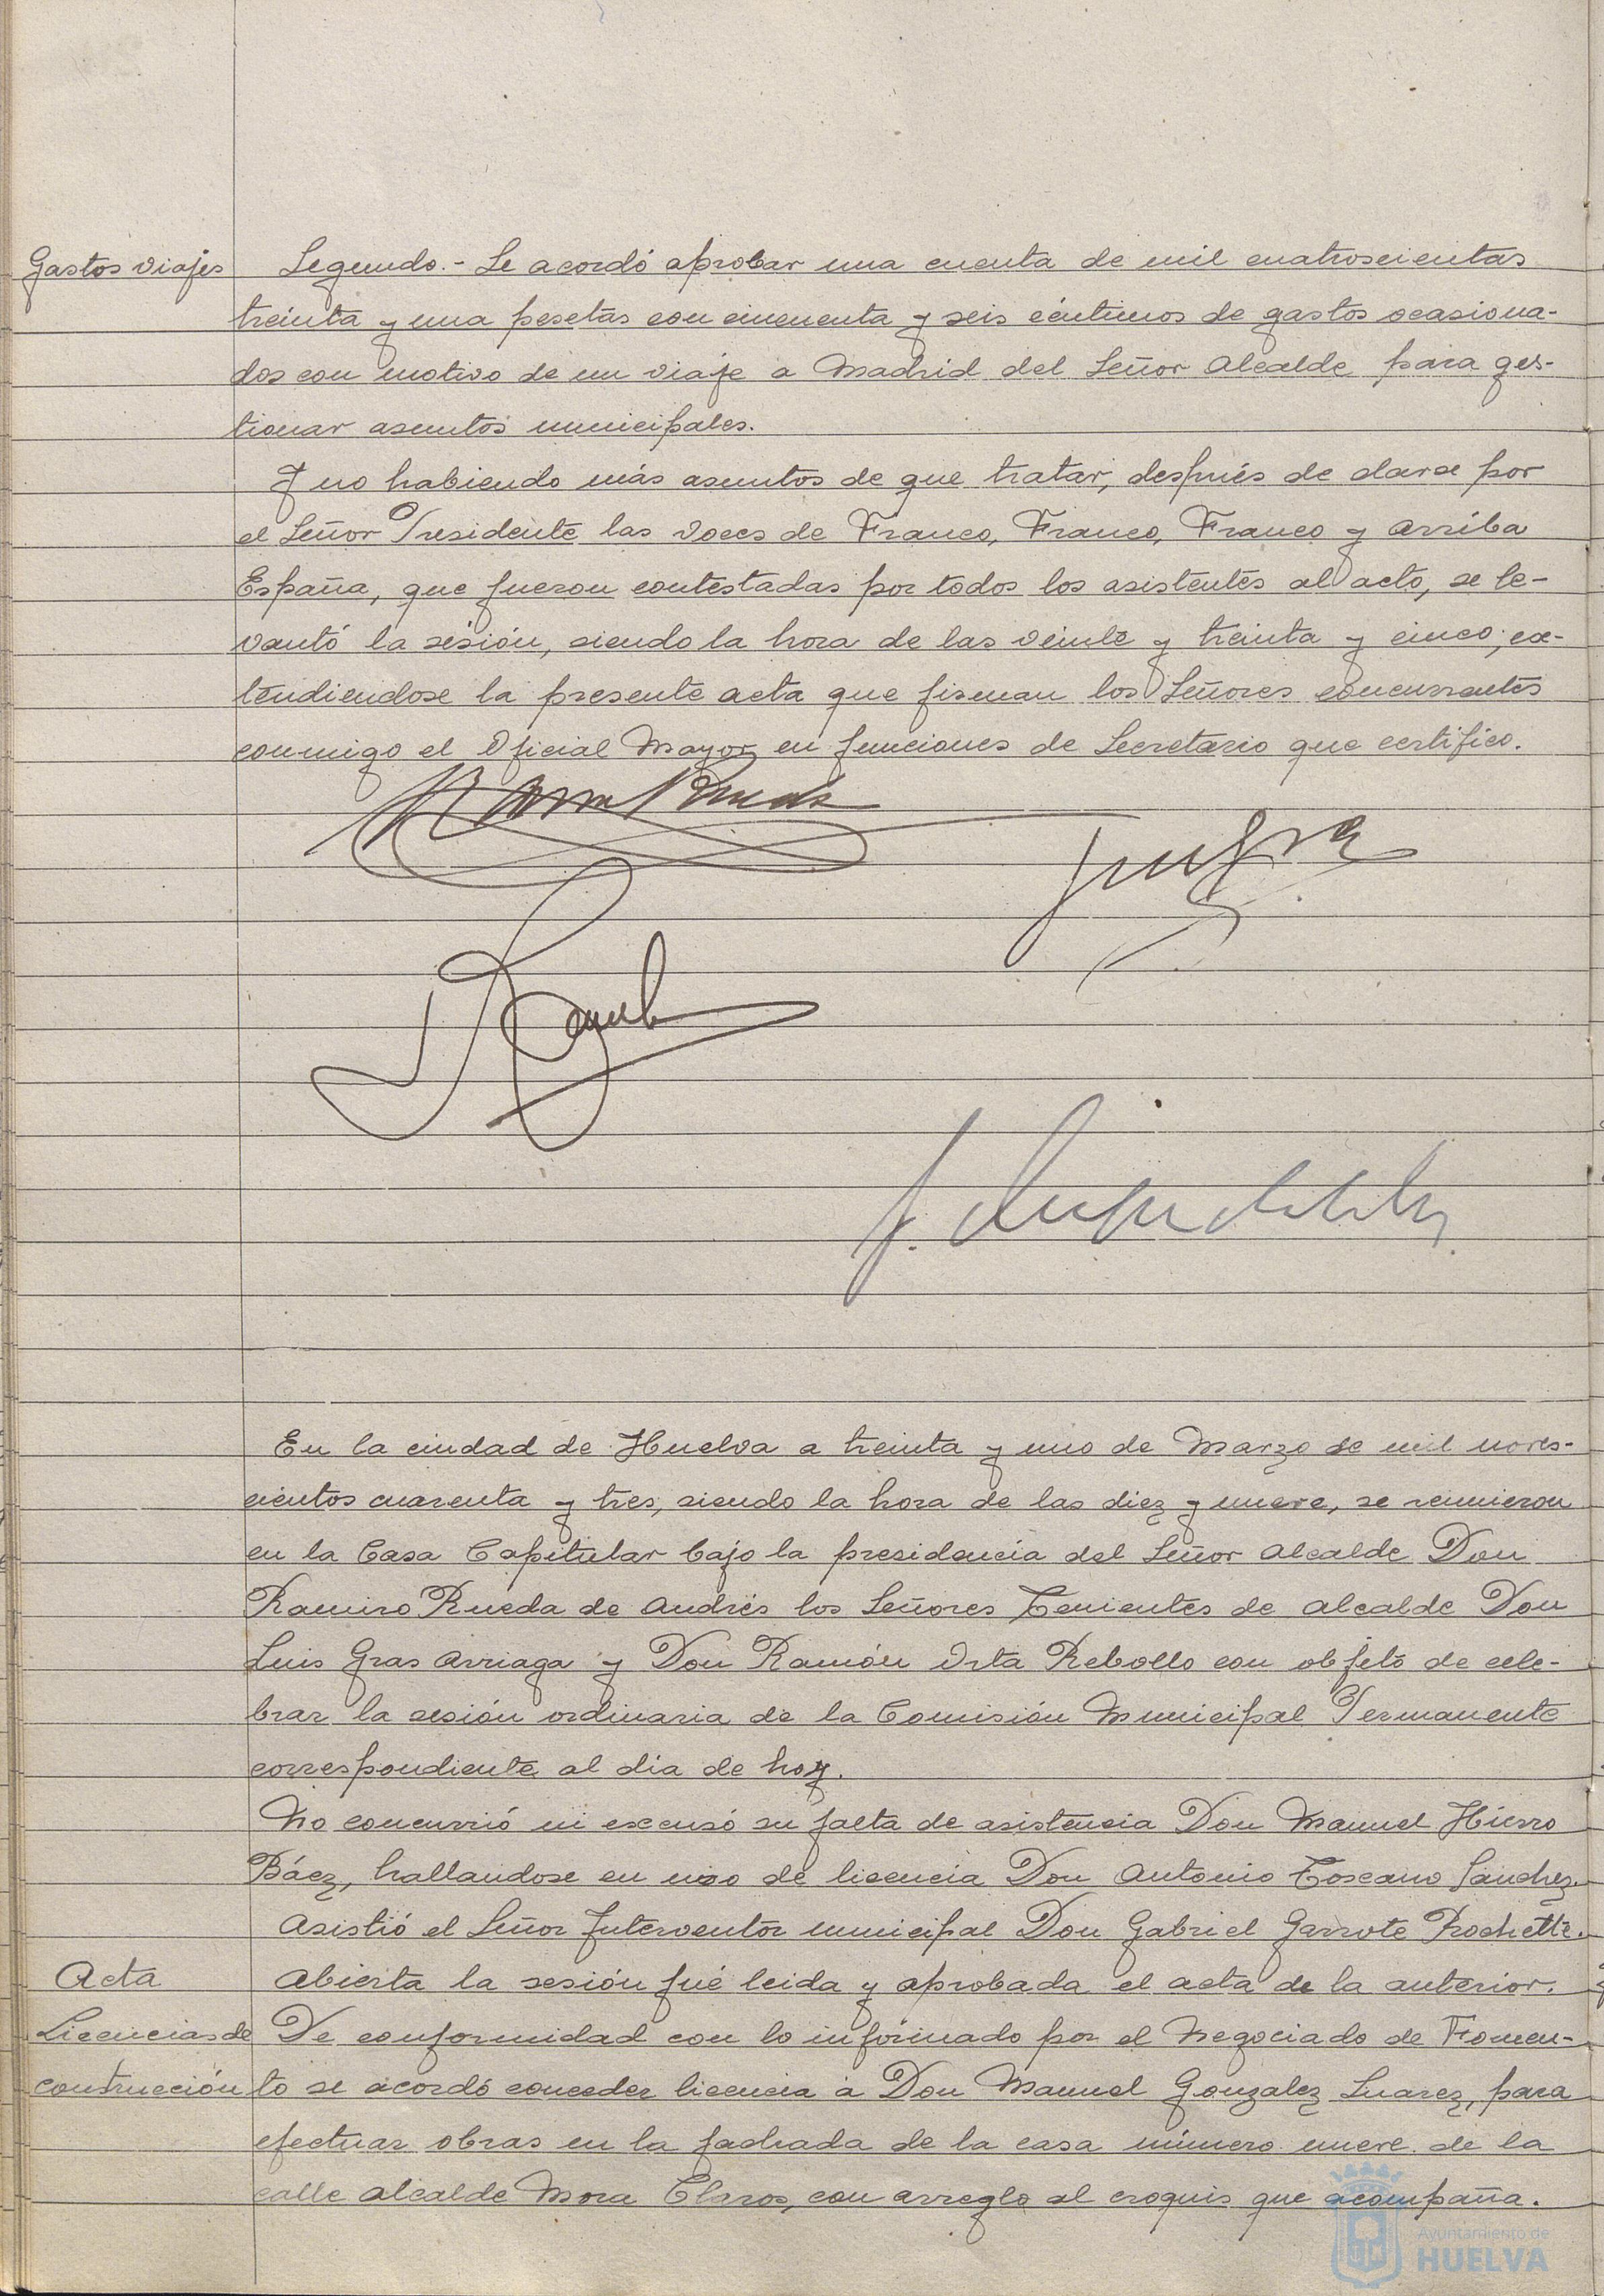 Gastos viajes
Segundo.- Se acordó aprobar una cuenta de mil cuatroscientas
treinta y una pesetas con cincuenta y seis céntimos de gastos ocasiona-
dos con motivo de un viaje a Madrid del Señor Alcalde para ges-
tionar asuntos municipales.
Y no habiendo más asuntos de que tratar, después de darse por
el Señor Presidente las voces de Franco, Franco, Franco y Arriba
España, que fueron contestadas por todos los asistentes al acto, se le-
vantó la sesión, siendo la hora de las veinte y treinta y cinco; ex-
tendiendose la presente acta que firman los Señores concurrentes
conmigo el Oficial Mayor en funciones de Secretario que certifico.
En la ciudad de Huelva a treinta y uno de Marzo de mil noves-
cientos cuarenta y tres, siendo la hora de las diez y nueve, se reunieron
en la Casa Capitular bajo la presidencia del Señor Alcalde Don
Ramiro Rueda de Andrés los Señores Tenientes de Alcalde Don
Luis Gras Arriaga y Don Ramón Orta Rebollo con objeto de cele-
brar la sesión ordinaria de la Comisión Municipal Permanente
correspondiente al dia de hoy.
No concurrió ni escusó su falta de asistencia Don Manuel Hierro
Báez, hallandose en uso de licencia Don Antonio Toscano Sánchez.
Asistió el Señor Interventor municipal Don Gabriel Garrote Rochette.
Acta
Abierta la sesión fué leida y aprobada el acta de la anterior.
Licencias de
De conformidad con lo informado por el Negociado de Fomen-
contrucción
to se acordó conceder licencia a Don Manuel Gonzalez Suarez, para
efectuar obras en la fachada de la casa número nueve de la
calle Alcalde Mora Claros, con arreglo al croquis que acompaña.
Ayuntamiento de
HUELVA